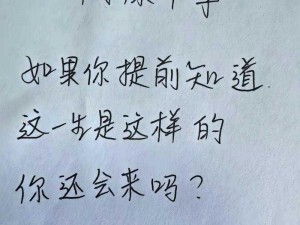 如果你提前知道
这一生是这样的
你还会来吗?